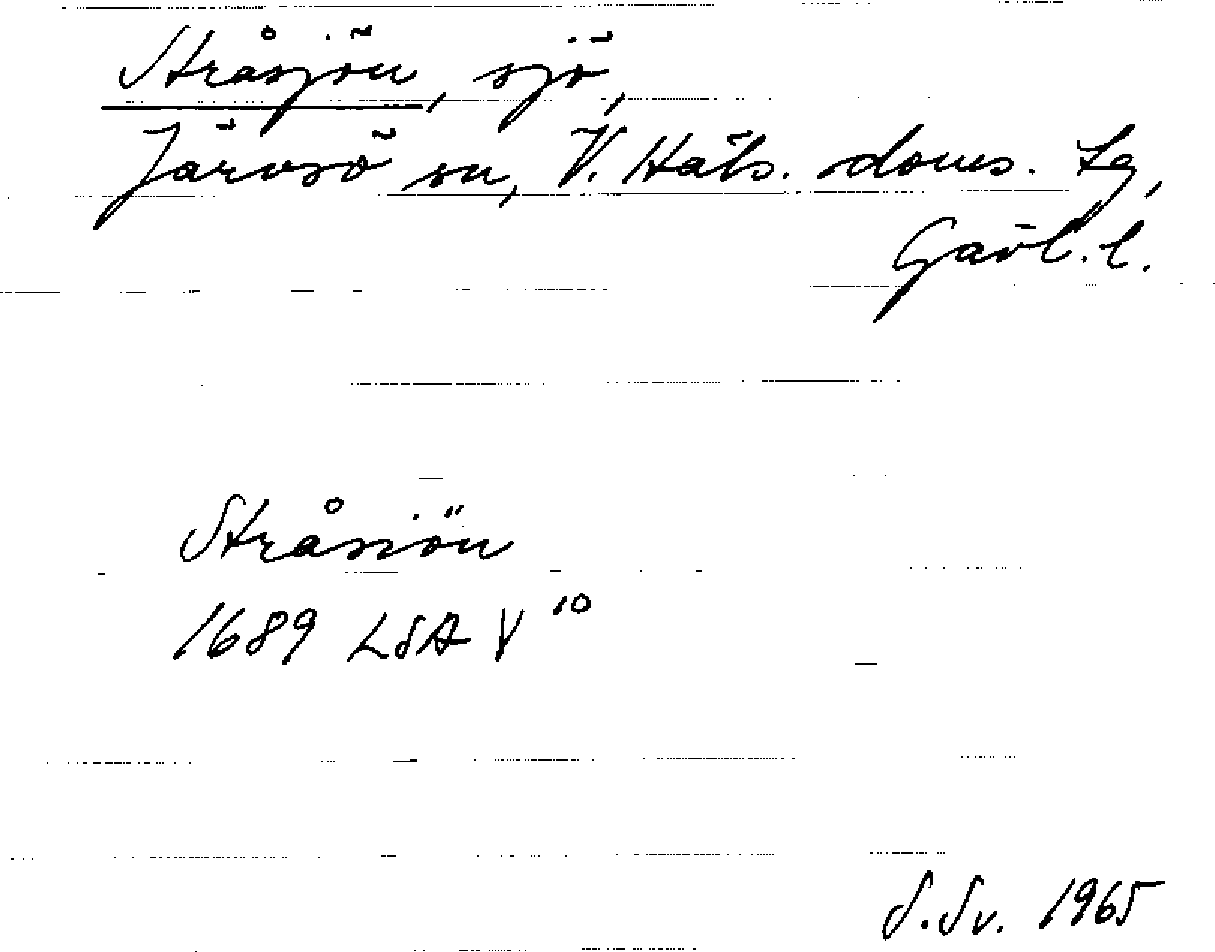 Stråsjön, sjö,
Järvsö sn, V. Häls. doms. Lg,
Gävl. l.
Stråsiön
1689 LSA V 10
S. Sv. 1965